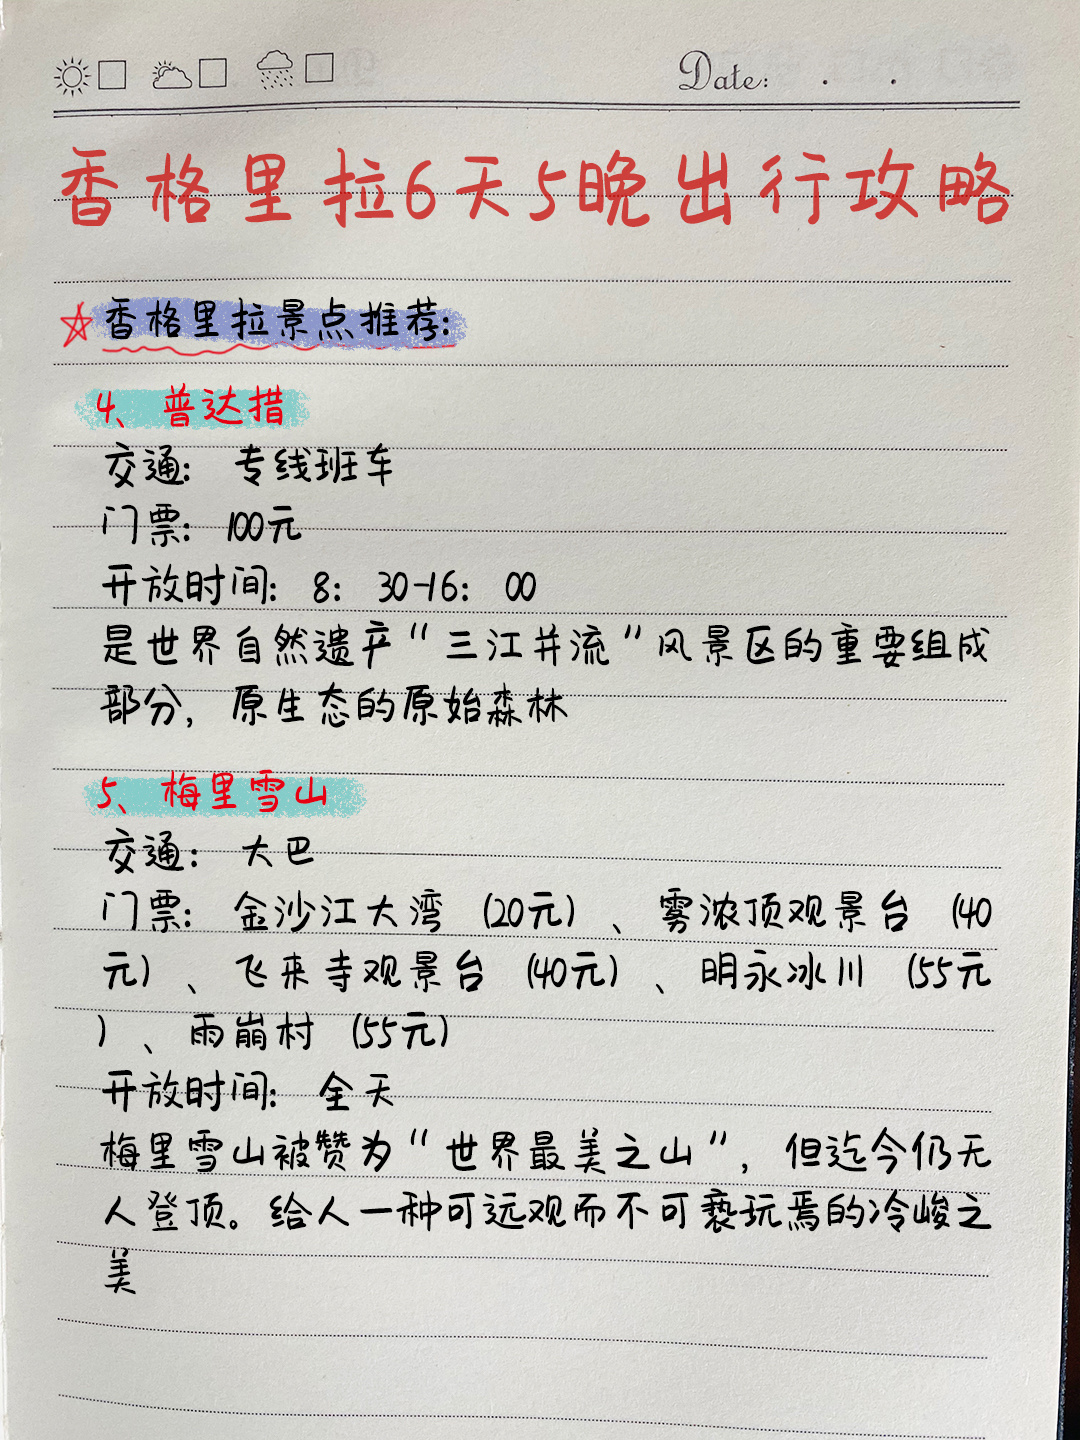 Date:
香格里拉6天5晚出行攻略
香格里拉景点推荐:
4、普达措
交通: 专线班车
门票: 100元
开放时间: 8: 30-16: 00
是世界自然遗产"三江并流"风景区的重要组成
部分, 原生态的原始森林
5、梅里雪山
交通: 大巴
门票: 金沙江大湾 (20元) 、雾浓顶观景台 (40
元) 、飞来寺观景台 (40元) 、明永冰川 (55元
) 、雨崩村 (55元)
开放时间: 全天
梅里雪山被赞为"世界最美之山", 但迄今仍无
人登顶。给人一种可远观而不可亵玩焉的冷峻之
美